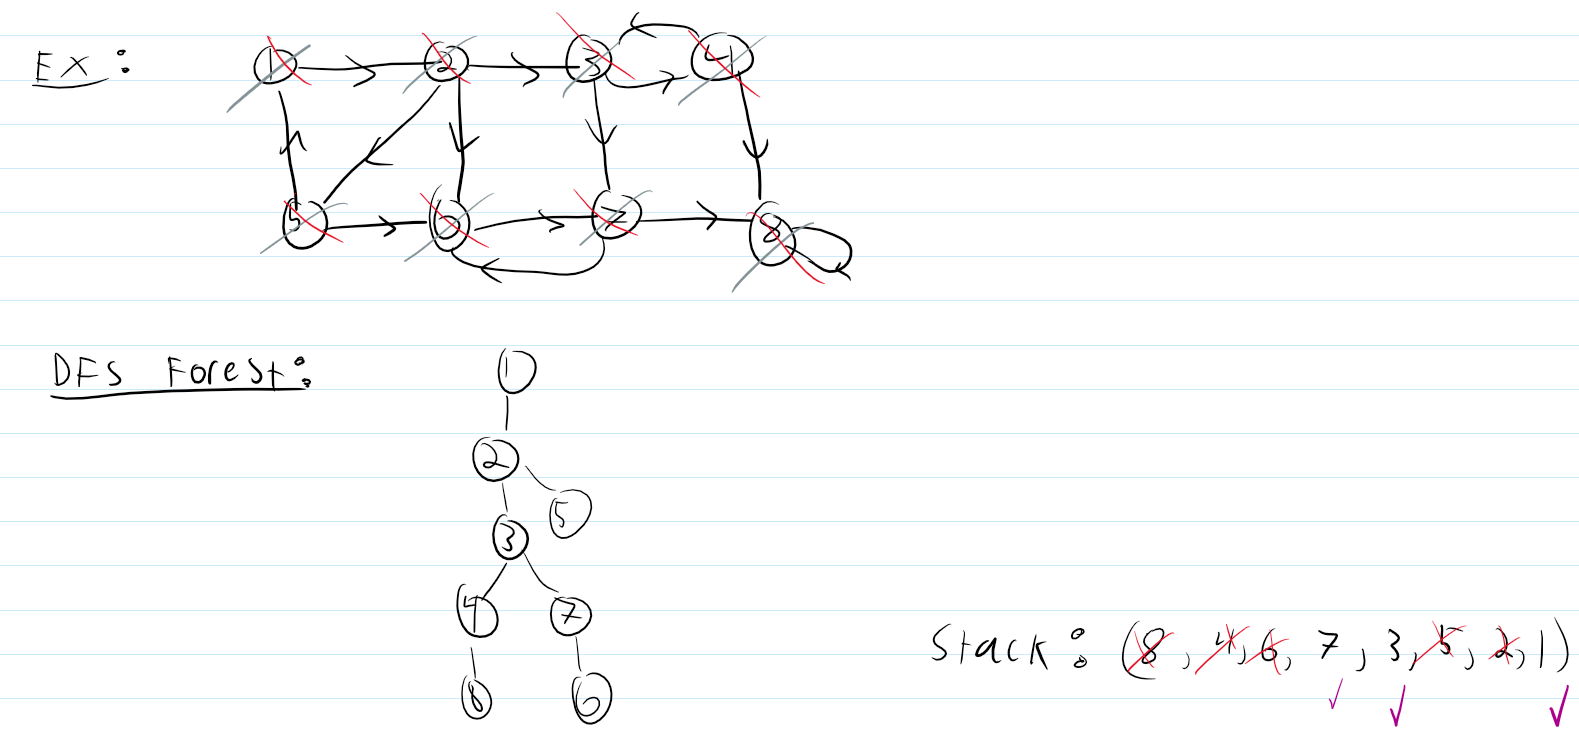 Ex:
1 2 3 4
5 6 7 8
DFS Forest:
1
2
5
3
4 7
8 6
Stack: (8, 4, 6, 7, 3, 5, 2, 1)